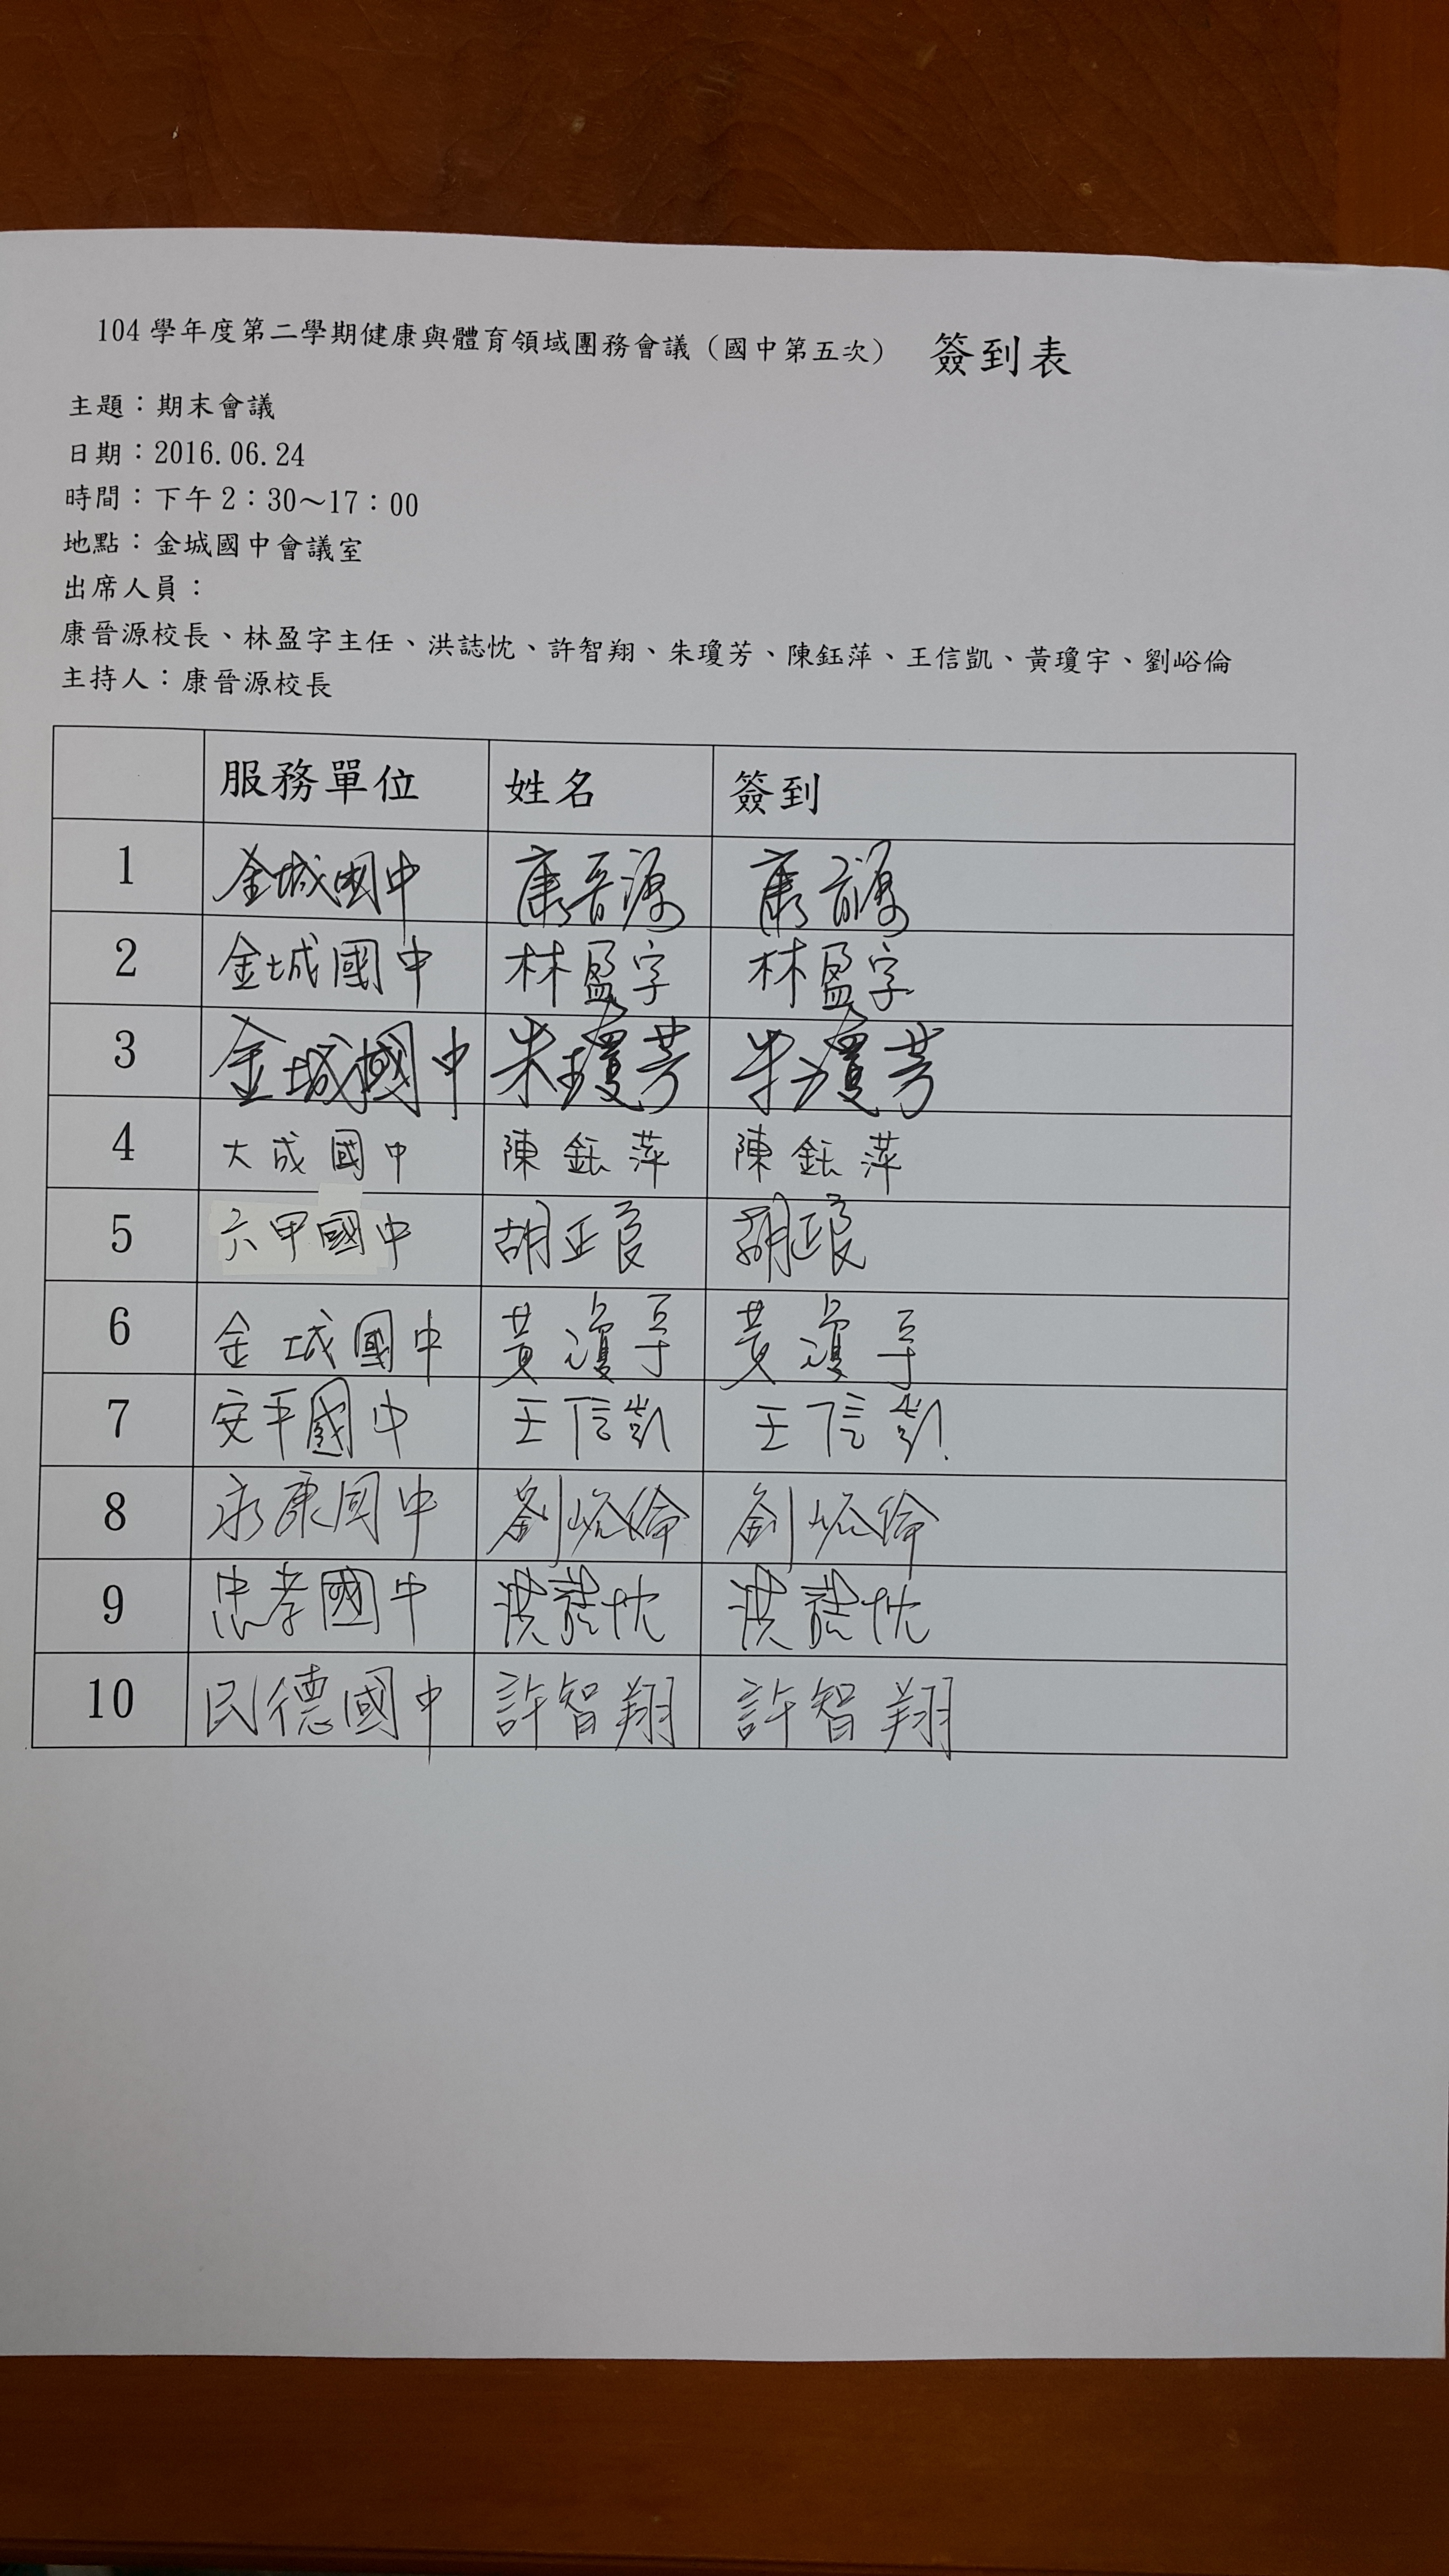 104學年度第二學期健康與體育領域團務會議（國中第五次） 簽到表
主題：期末會議
日期：2016.06.24
時間：下午2：30～17：00
地點：金城國中會議室
出席人員：
康晉源校長、林盈字主任、洪誌忱、許智翔、朱瓊芳、陳鈺萍、王信凱、黃瓊宇、劉峪倫
主持人：康晉源校長
服務單位 姓名 簽到
1 金城國中 康晉源 康晉源
2 金城國中 林盈字 林盈字
3 金城國中 朱瓊芳 朱瓊芳
4 大成國中 陳鈺萍 陳鈺萍
5 六甲國中 胡正良 胡正良
6 金城國中 黃瓊宇 黃瓊宇
7 安平國中 王信凱 王信凱
8 永康国中 劉峪倫 劉峪倫
9 忠孝國中 洪誌忱 洪誌忱
10 民德國中 許智翔 許智翔